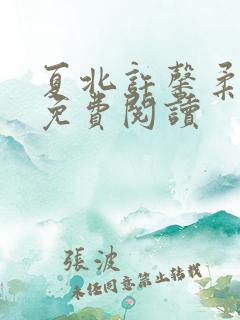 夏北許馨柔
免費閱讀
張波
未经同意禁止转载